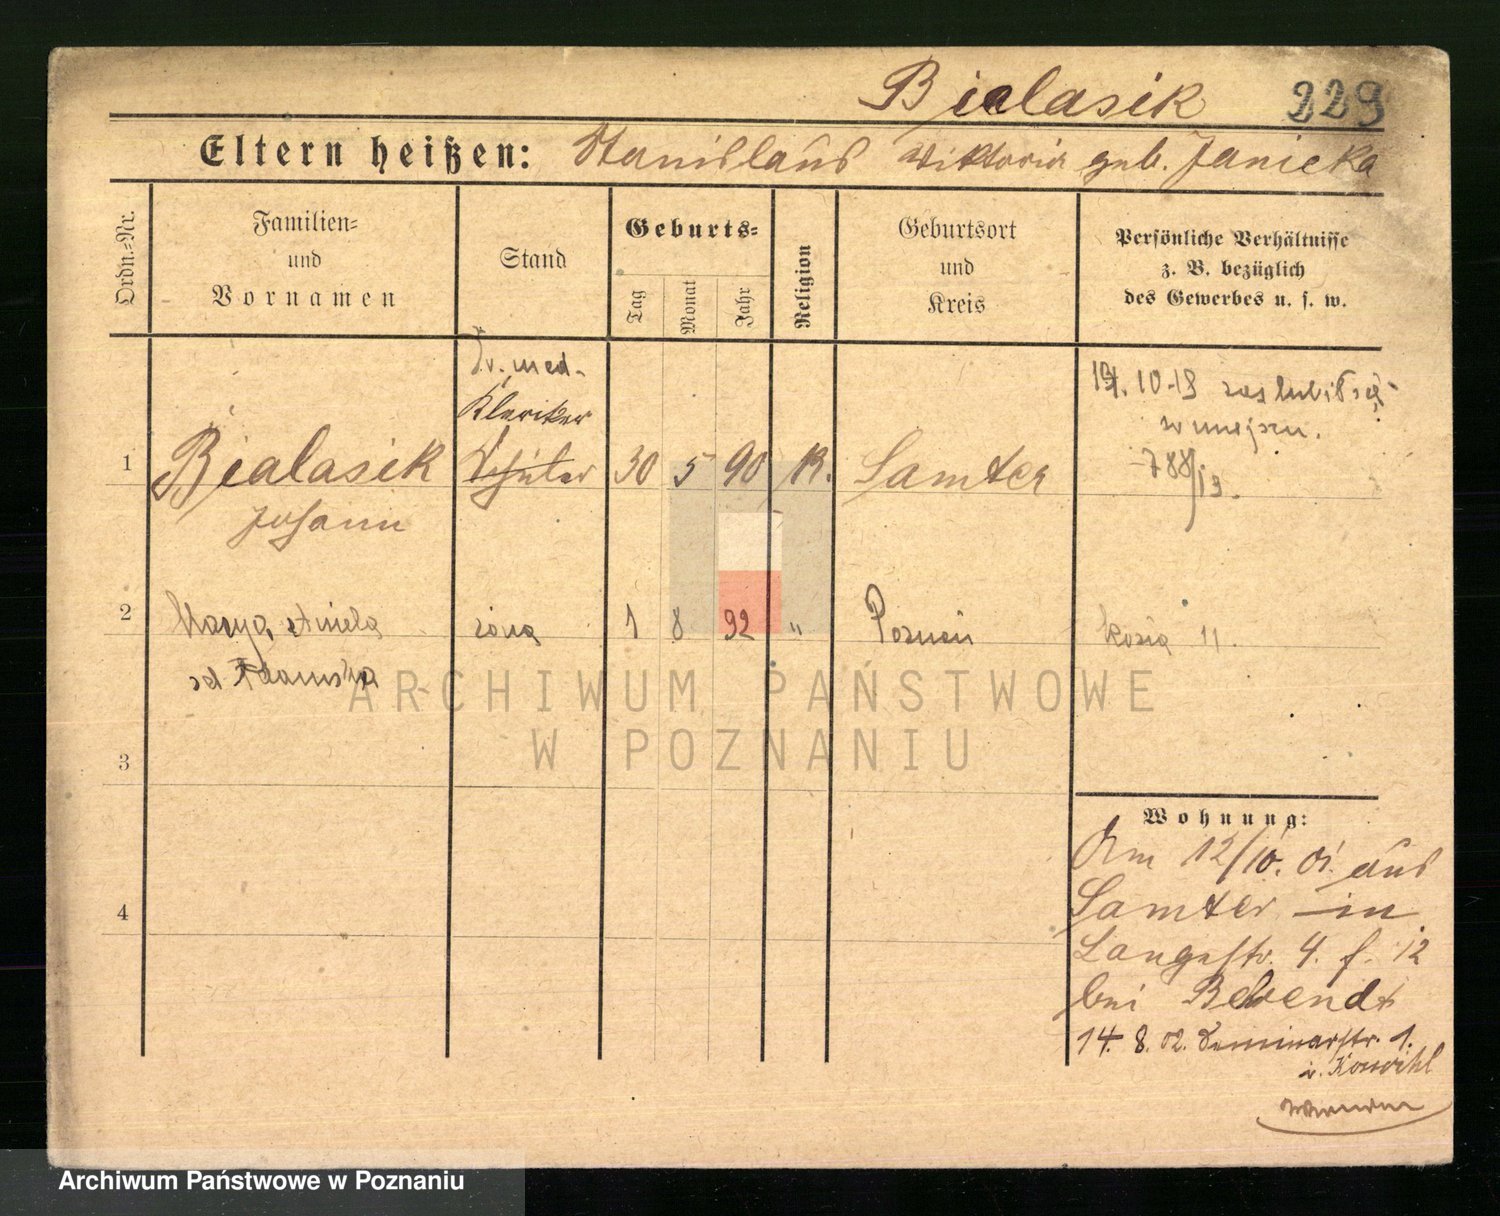 Bialasik 229
Eltern heißen: Stanislaus Wiktoria geb. Janicka
Ordn.=Nr.
Familien=
und
Vornamen
Stand
Geburts=
Tag
Monat
Jahr
Religion
Geburtsort
und
Kreis
Persönliche Verhältnisse
z. B. bezüglich
des Gewerbes u. s. w.
Dr. med.
Kleriker
1 Bialasik Schüler 30 5 90 K. Samter
Johann
10-19 zaslubił się
w miejscu.
788/19.
2 Marya, Aniela żona 1 8 92 " Poznań kozia 11.
od Adamska
3
4
Wohnung:
Am 12/10. 01. aus
Samter in
Langestr. 4. f. 12
bei Behrendt
14. 8. 02. Seminarstr. 1.
ARCHIWUM PAŃSTWOWE
W POZNANIU
Archiwum Państwowe w Poznaniu